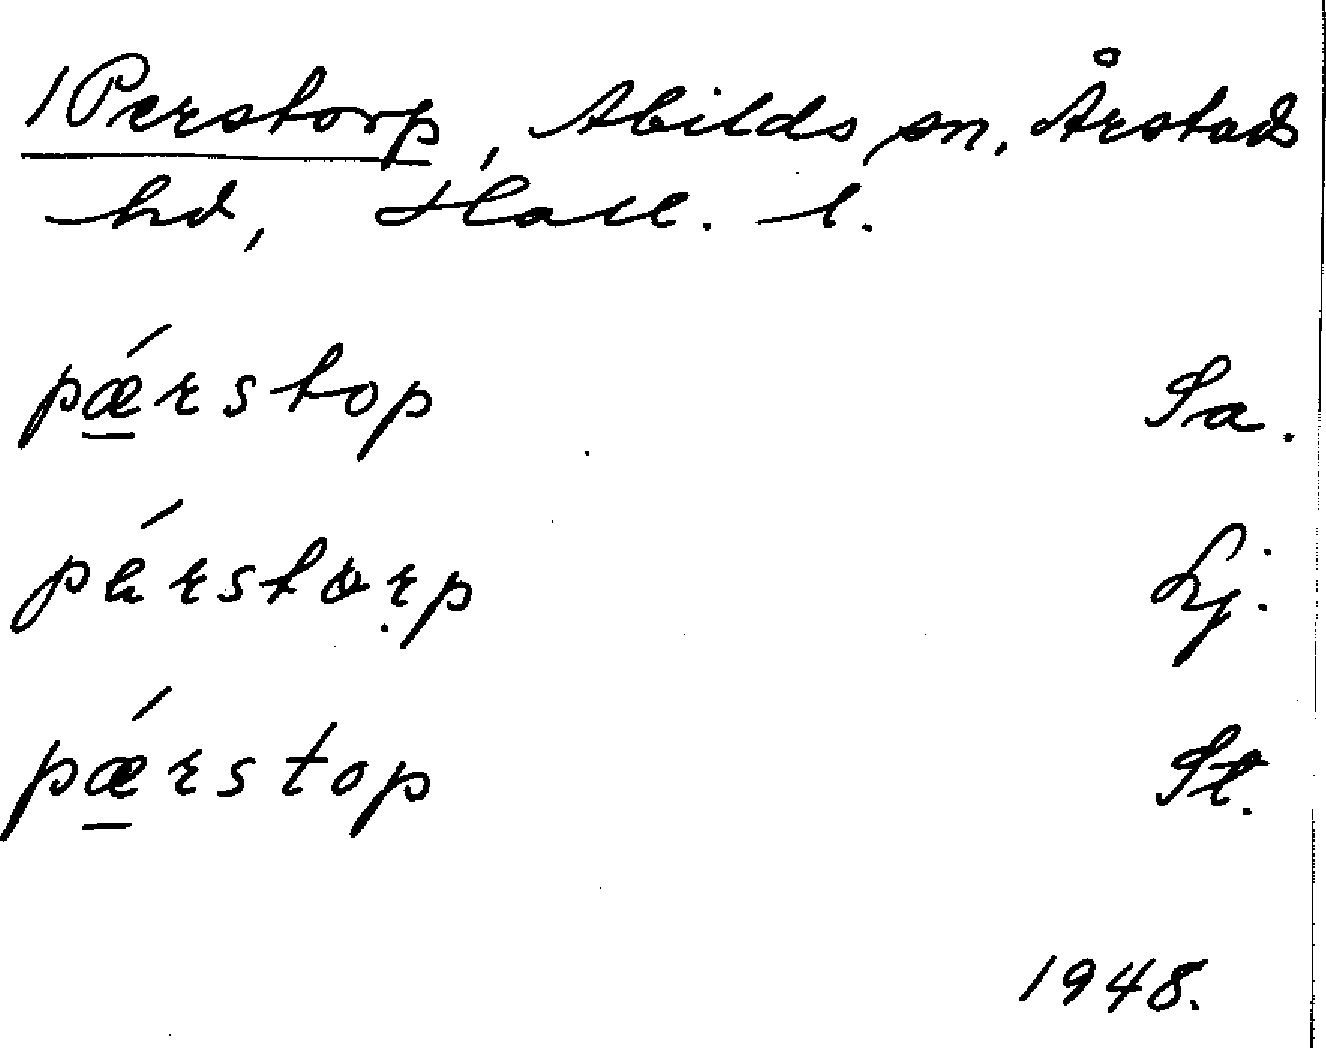 1 Perstorp, Abilds sn, Årstads
hd, Hall. l.
pǽ̱rstop Sa.
pérstorp Lj.
pǽ̱rstop St.
1948.